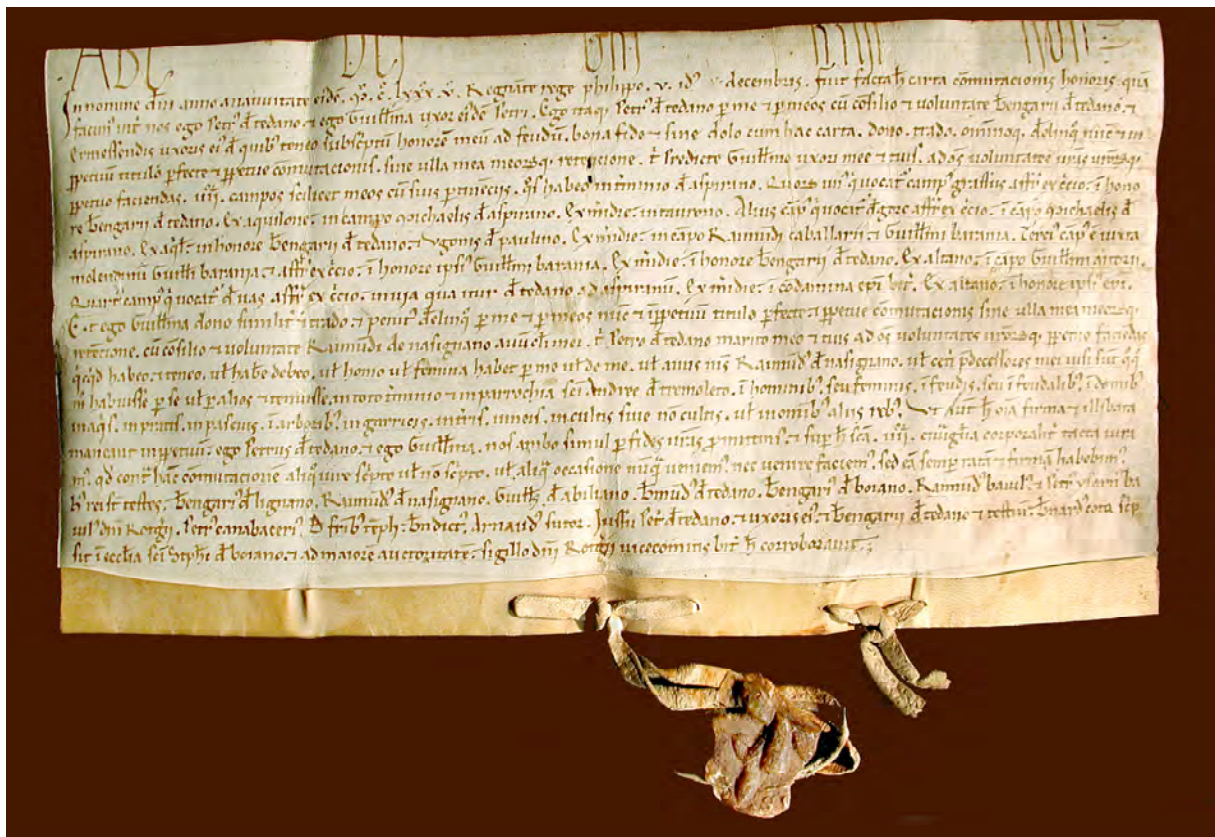 ABC DEF GHI
In nomine dñi anno a natiuitate eiusdē. Mº. Cº. lxxx. vº. Regnāte rege philippo. v. idꝰ decembris. fuit facta ħ carta cōmutacionis honoris quā
facimꝰ int̄ nos ego petrꝰ đ tedano ⁊ ego Guiłłma uxor eiꝰđē petri. Ego itaq petrꝰ đ tedano p me ⁊ p meos cū cōsilio ⁊ voluntate ƀengarii đ tedano. ⁊
ermessendis uxoris eiꝰ đ quibꝰ teneo subsc̄ptū honorē meū ad feudū. bona fide ⁊ sine dolo cum hac carta. dono. trado. omnimoq. đelinq m̄c ⁊ in
ppetuū titulo pfecte ⁊ ppetue comutacionis. sine ulla mea meorūq. retencione. t̄ predicte Guiłłme uxori mee ⁊ tuis. ad oṁs voluntates ur̄as
ppetuo faciendas. iiii. campos scilicet meos cū suis ptinēciis. q̄s habeo in t̄minio đ aspirano. Quorū unꝰ q̄ uocat̄ campꝰ grassus affr̄ ex c̄cio. ī hono
re ƀengarii đ tedano. Ex aquilone. in campo michaelis đ aspirano. Ex m̄die. in taurono. Aliꝰ cāpꝰ q̄ uocat̄ đ gore affr̄ ex c̄cio. ī cāpo michaelis đ
aspirano. Ex aq̄ł. in honore ƀengarii đ tedano. ⁊ Vgonis đ paulino. Ex m̄die. in cāpo Raimūdi caballarii ⁊ Guiłłmi barania. Terciꝰ cāpꝰ ē iuxta
molendinū Guiłłi barania. ⁊ affr̄ ex c̄cio. ī honore ipsiꝰ Guiłłmi barania. Ex m̄die. ī honore ƀengarii đ tedano. Ex altano. ī cāpo Guiłłmi
Quartꝰ campꝰ q̄ uocat̄ đ uas affr̄ ex c̄cio. in uia qua itur đ tedano ad aspiranū. Ex m̄die. ī codamina ep̄i bit̄. Ex altano. ī honore ipsiꝰ ep̄i.
E. ⁊ ego Guiłłma dono similit̄ ⁊ trado. ⁊ penitꝰ đelinq̄ p me ⁊ p meos m̄c ⁊ ī ppetuū titulo pfecte ⁊ ppetue comutacionis sine ulla mea meorūq.
retēcione. cū cōsilio ⁊ voluntate Raimūdi de nasignano auūcłi mei. t̄ petro đ tedano marito meo ⁊ tuis ad oṁs voluntates ppetuo faciēdas
q̄cq̄d habeo. ⁊ teneo. uł habē debeo. uł homo uł femina habet p me uł de me. uł auus mꝰ Raimūdꝰ đ nasignano. uł cet̄i p̄decessores mei uisi sūt
habuisse p se uł p alios ⁊ tenuisse. in toto t̄minio ⁊ in parrochia sc̄i Andree đ tremoleto. ī hominibꝰ. seu feminis. ī feudis. seu ī feudalibꝰ.
in aq̄s. in pratis. in pascuis. ī arboribꝰ. in garricis. in t̄ris. in uineis. in cultis siue nō cultis. uł in omibꝰ aliis rebꝰ. Vt aut̄ ħ oīa firma ⁊ illibata
maneant in ppetuū. ego petrus đ tedano. ⁊ ego Guiłłma. nos ambo simul p fides ur̄as pmitimꝰ. ⁊ sup ħ sc̄a. iiii. euūgłia corporalit̄ tacta iura
mꝰ. qđ cont̄ hāc comutacionē aliq̄ iure sc̄pto uł nō sc̄pto. uł aliq̄ occasione nūq̄ ueniemꝰ. nec uenire faciemꝰ. sed eā semp ratā ⁊ firmā habebimꝰ.
ħ rei sūt testes. ƀengariꝰ đ lignano. Raimūdꝰ đ nasignano. Guiłłs đ abiliano. ƀnardꝰ đ tedano. ƀengariꝰ đ boiano. Raimūdꝰ baiulꝰ. ba
iulꝰ dn̄i Rotgii. petrꝰ canabaceriꝰ. ƀndictꝰ. Arnaudꝰ sutor. Iussu pet̄ đ tedano. ⁊ uxoris eiꝰ. ⁊ ƀengarii đ tedano ⁊ testiū. ƀnardꝰ cota sc̄p
sit ī ecc̄lia sc̄i stephī đ boiano. ⁊ ad maiorē auctoritatē. sigillo dn̄i Rotgii uicecomitis bit̄ ħ corroborauit.